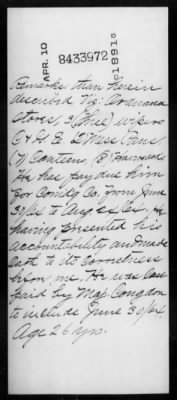 APR. 10 8433972 1891
Remarks. than herein
described Viz: Ordnance
Stores, 3 (three) wipers
C & H E 2 Mess Pans,
(1) Canteen, (3) Haversacks
He has pay due him
for Comdg Co. from June
30/64 to Aug. 22/64, he
having presented his
accountability and made
oath to its correctness
before me. He was last
paid by Maj. Congdon
to include June 30/64.
Age 26 yrs.